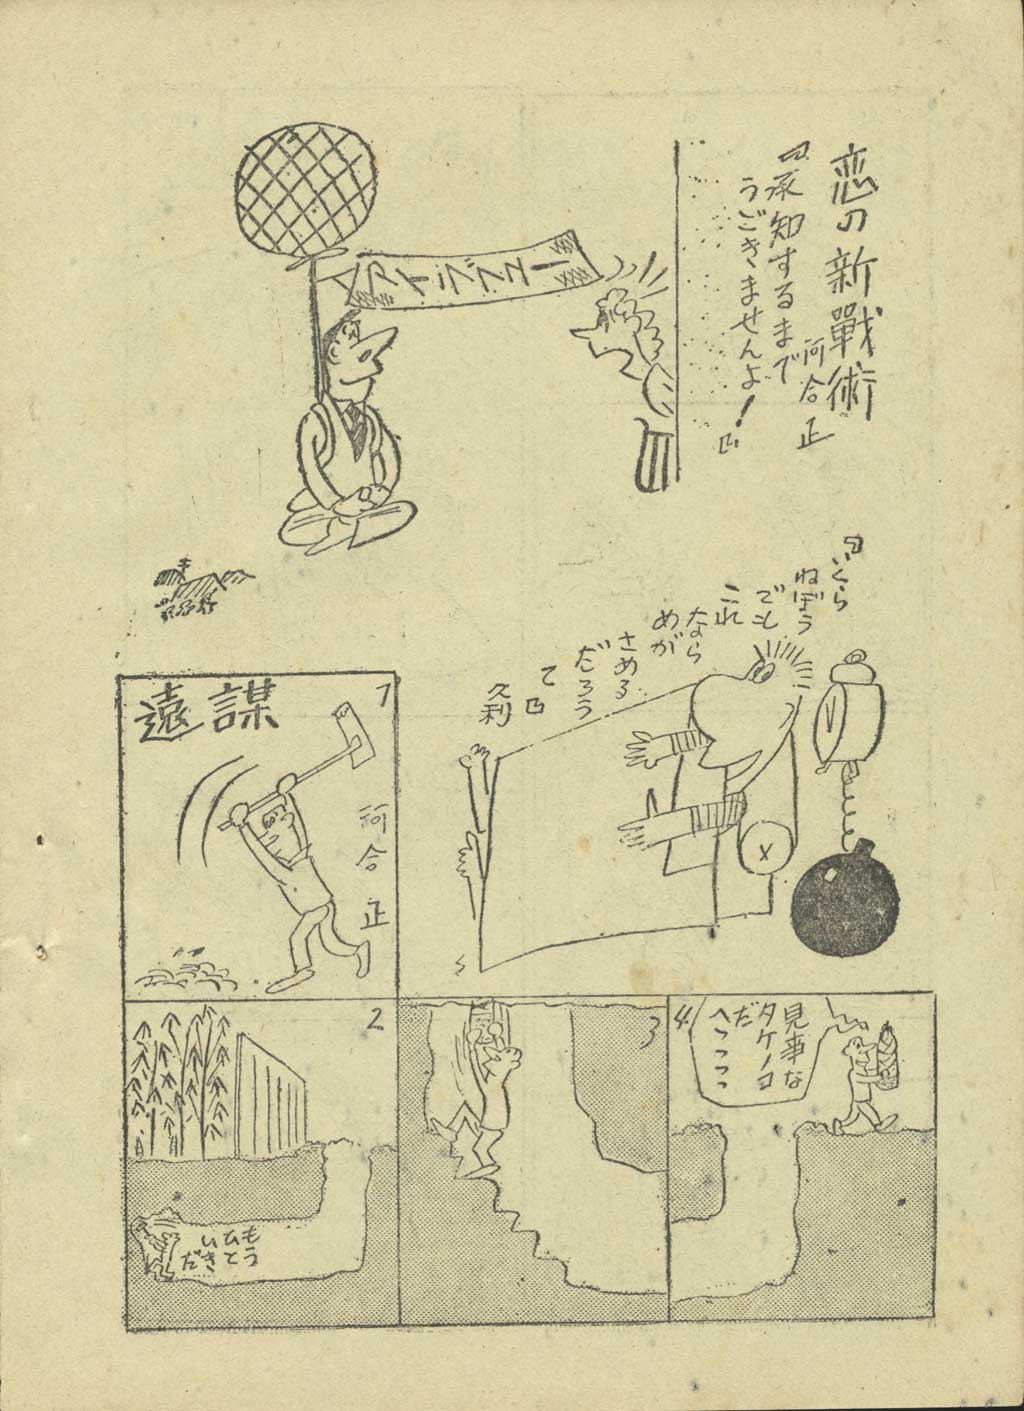 恋の新戰術
河合正
『承知するまで
うごきませんよ!』
アイラブユー
『いくら
ねぼう
でも
これ
なら
めが
さめる
だろう
て』
久利
遠謀
1
河合正
2
もう
ひと
いき
だ
3
4
見事な
タケノコ
だ
へっっっ